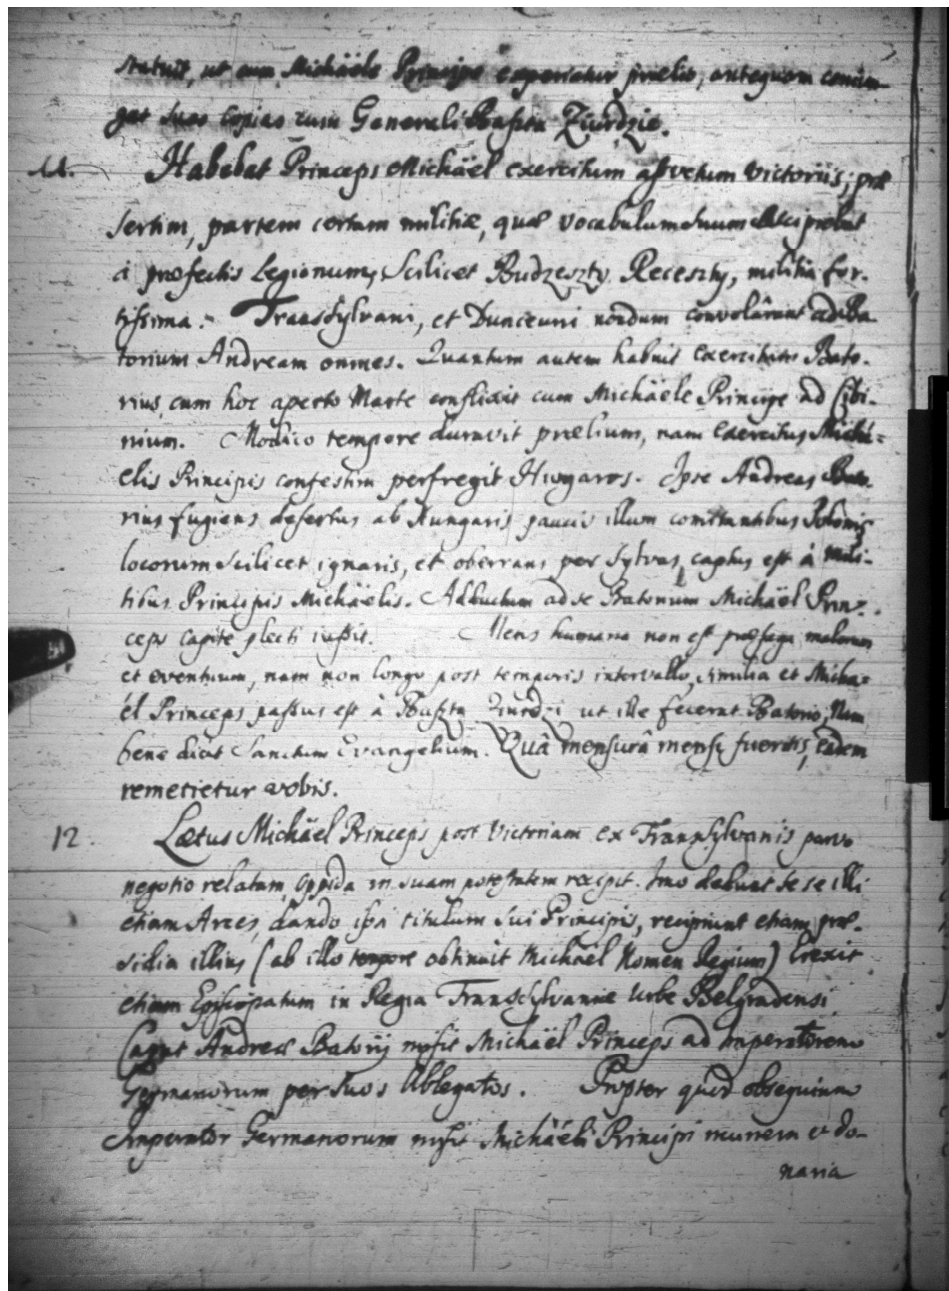 statuit, ut cum Michäele Principe experiatur prælio, antequam conjun-
gat suas copias cum Generali Baszta Ziurdzie.
11. Habebat Princeps Michäel exercitum assvetum victoriis; præ
sertim, partem certam militiæ, quæ vocabulum suum
à præfectis Legionum, scilicet Budzeszty Receszty, militia for-
tissima. Transsylvani, et Dunceurii nondum convolârunt ad Ba
torium Andream omnes. Quantum autem habuit exercitus Bato-
rius, cum hoc aperto Marte conflixit cum Michäele Principe ad Cibi-
nium. Modico tempore duravit prælium, nam exercitus Michä-
elis Principis confestim perfregit Hungaros. Ipse Andreas Bato-
rius fugiens desertus ab Hungaris paucis illum comitantibus Polonis
locorum scilicet ignaris, et oberrans per sylvas, captus est à mili-
tibus Principis Michäelis. Adductum ad se Batorium Michäel Prin-
ceps capite plecti iussit. Mens humana non est præsaga malorum
et eventuum, nam non longo post temporis intervallo, similia et Micha-
ël Princeps passus est à Baszta Ziurdzi ut ille fecerat Batorio; Nam
bene dicit Sanctum Evangelium. Quâ mensurâ mensi fueritis, eâdem
remetietur vobis.
12. Lætus Michäel Princeps post victoriam ex Transsylvanis parvo
negotio relatam, oppida in suam potestatem recipit. Imo dabunt sese illi
etiam Arces, dando ipsi titulum sui Principis, recipiunt etiam præ-
sidia illius (ab illo tempore obtinuit Michäel Nomen Regium) Erexit
etiam Episcopatum in Regia Transsylvaniæ Urbe Belgradensi
Caput Andreæ Batorij misit Michäel Princeps ad Imperatorem
Germanorum per suos Ablegatos. Propter quod obsequium
Imperator Germanorum misit Michäeli Principi munera et do-
naria